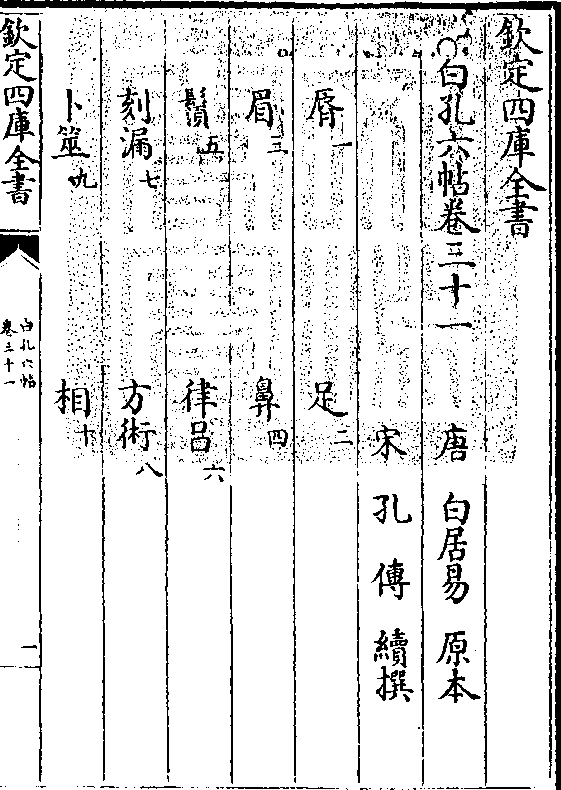 欽定四庫全書
白孔六帖卷三十一 唐 白居易 原本
宋 孔傳 續撰
脣一 足二
眉三 鼻四
鬚五 律呂六
刻漏七 方術八
卜筮九 相十
欽定四庫全書
白孔六帖
卷三十一
一